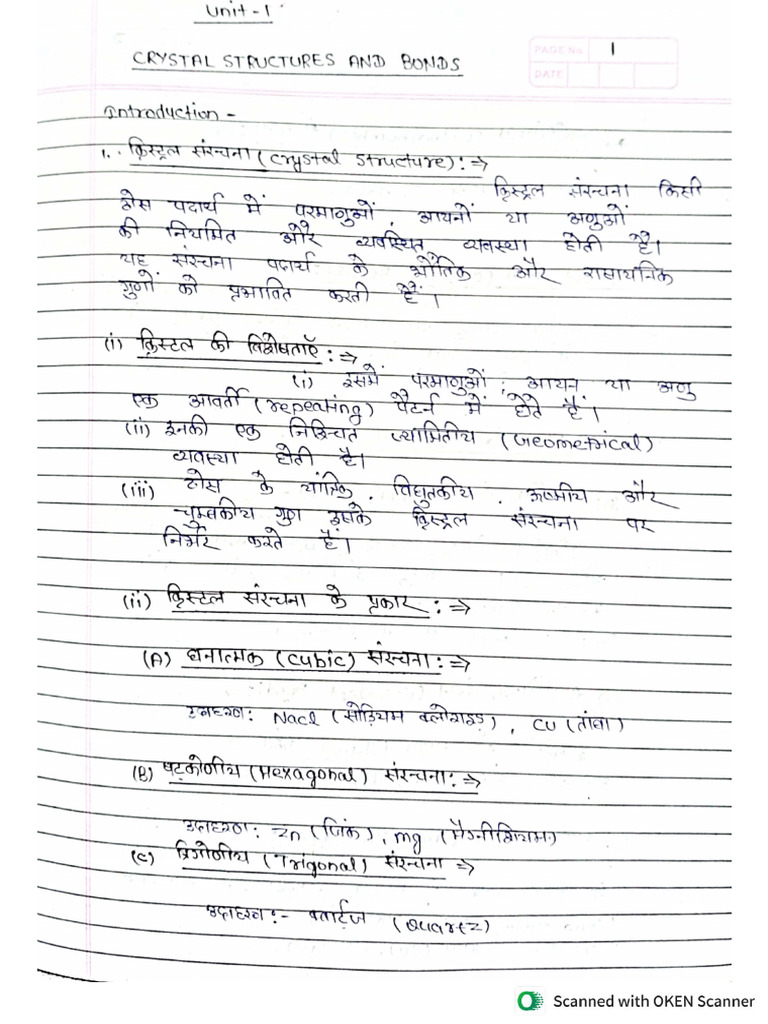 Unit-1
CRYSTAL STRUCTURES AND BONDS
PAGE No 1
DATE
Introduction -
1. क्रिस्ट्रल संरचना (Crystal Structure) : ⇒
क्रिस्ट्रल संरचना किसी
ठोस पदार्थ में परमाणुओं, आयनों या अणुओं
की नियमित और व्यवस्थित व्यवस्था होती है।
यह संरचना पदार्थ के भौतिक और रासायनिक
गुणों को प्रभावित करती है।
(i) क्रिस्टल की विशेषताएँ : ⇒
(i) इसमें परमाणुओं, आयन या अणु
एक आवर्ती (repeating) पैटर्न में होते हैं।
(ii) इनकी एक निश्चित ज्यामितीय (Geometrical)
व्यवस्था होती है।
(iii) ठोस के यांत्रिक, विद्युतकीय, ऊष्मीय और
चुम्बकीय गुण इसके क्रिस्ट्रल संरचना पर
निर्भर करते हैं।
(ii) क्रिस्टल संरचना के प्रकार : ⇒
(A) घनात्मक (Cubic) संरचना : ⇒
उदाहरण: Nacl (सोडियम क्लोराइड), CU (तांबा)
(B) षट्कोणीय (Hexagonal) संरचना: ⇒
उदाहरण: Zn (जिंक), mg (मैग्नीशियम)
(C) त्रिगोणीय (Trigonal) संरचना ⇒
उदाहरण:- क्वार्ट्ज (Quartz)
Scanned with OKEN Scanner